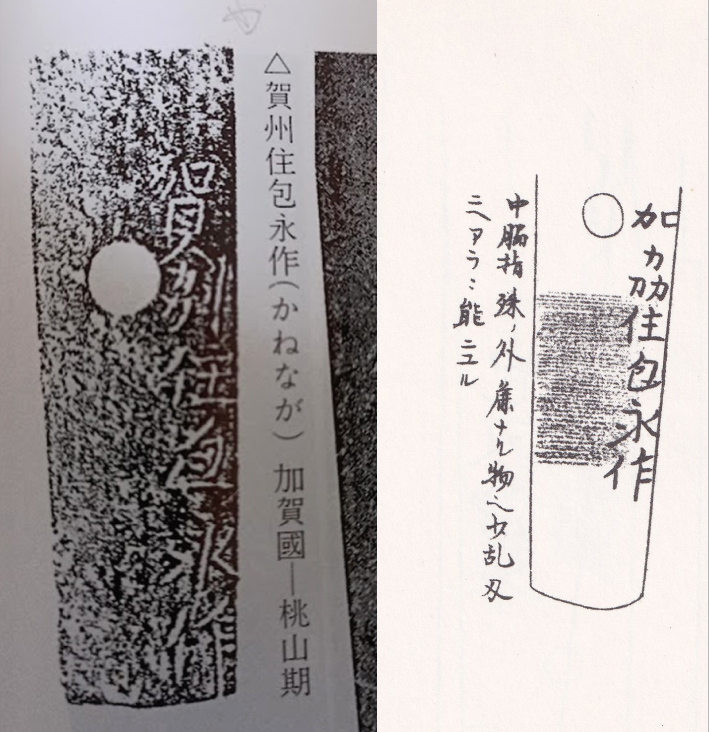 △賀州住包永作(かねなが) 加賀國―桃山期
賀刕住包永作
加劦住包永作
中脇指殊ノ外廉ナル物
乱刃
ニヘアラ
能ニエル